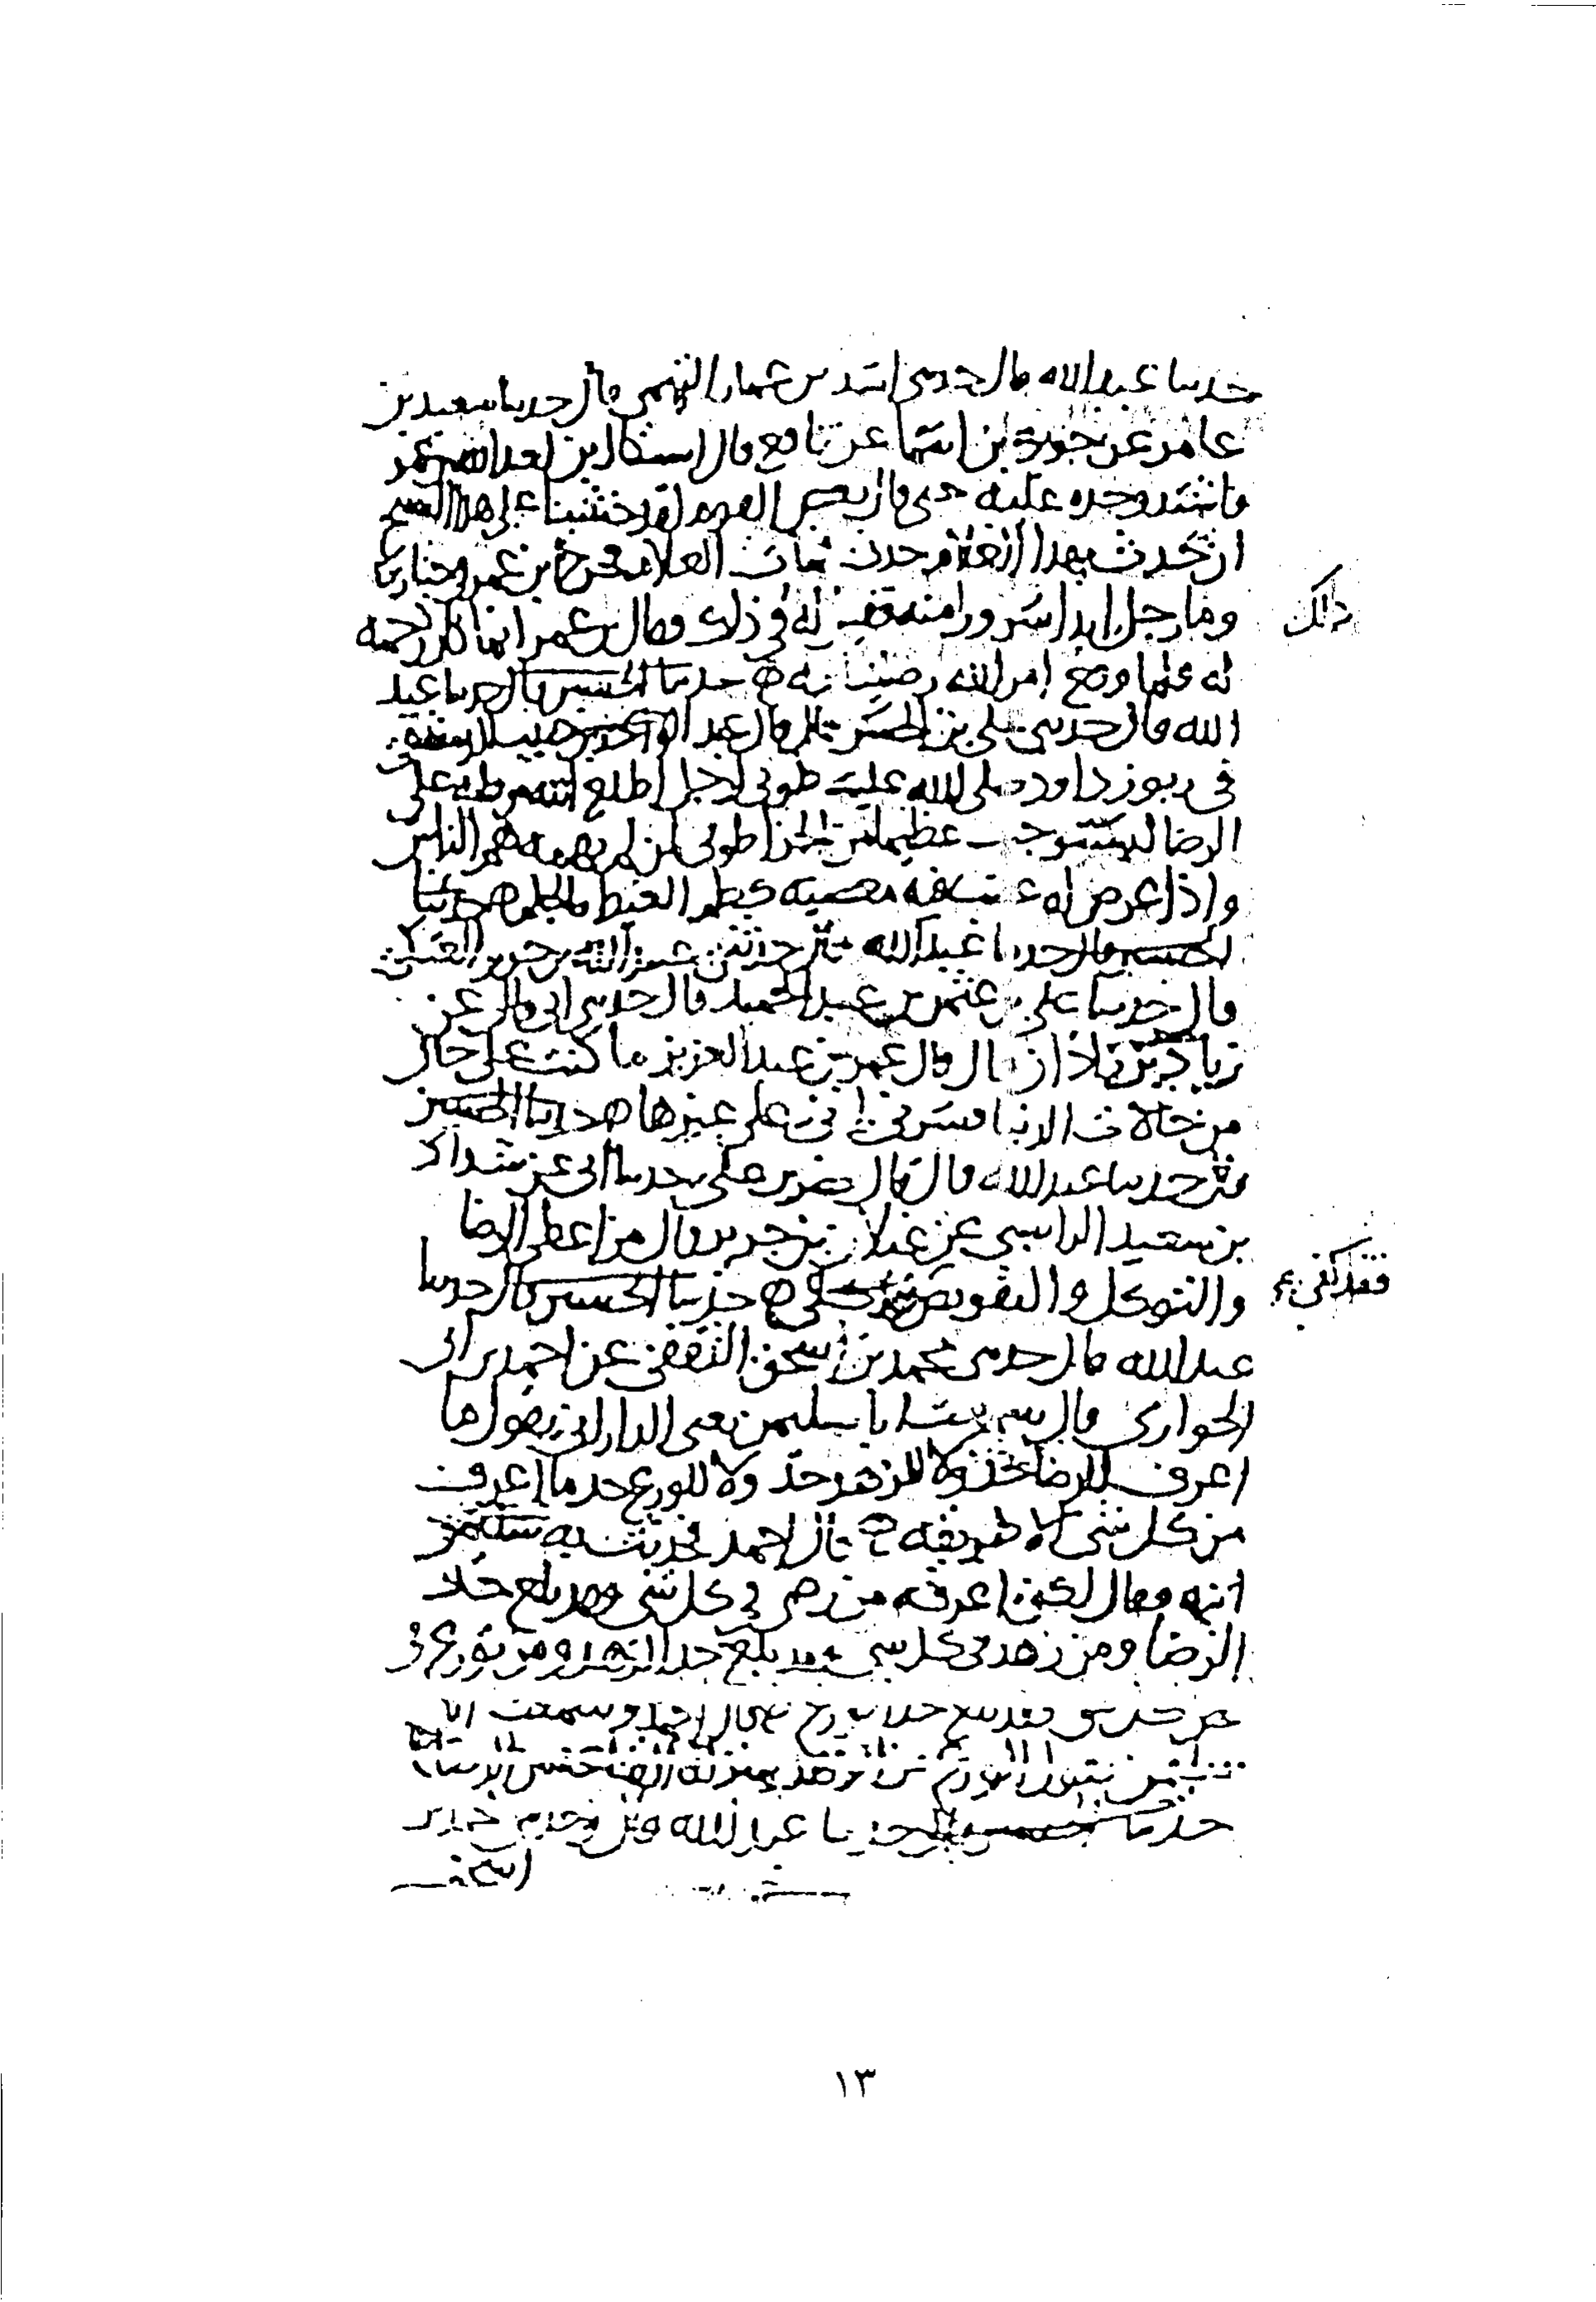 حدثنا عبد الله قال حدثني اسد بن عمار التميمي قال حدثنا سعيد بن
عامر عن جويرية بن اسما عن نافع قال اشتكا ابن لعبد الله بن عمر
فاشتد وجده عليه حتى قال بعض القوم لقد خشينا على هذا الشيخ
ان يحدث بهذا الغلام حدث فمات الغلام فخرج ابن عمر في جنازته
وما رجل ابدا سرورا منه فقيل له في ذلك فقال بن عمر انما كان رحمة
ذلك
له فلما وقع امر الله رضينا به ه حدثنا الحسين قال حدثنا عبد
الله قال حدثني علي بن الحسن قال قال عبد
في زبور داود صلى الله عليه طوبى لرجل اطلع الله من قلبه على
الرضا ليستوجب عظيما من الجزا طوبى لمن لم يهمه هم الناس
واذا عرض له غضب فيه معصية كظم الغيظ بالحلم ه حدثنا
الحسين قال حدثنا عبد الله قال حدثني عبيد الله بن جرير العتكي
قال حدثنا علي بن عثمن بن عبد الحميد قال حدثني ابي قال عن
زياد بن زاذان قال قال عمر بن عبد العزيز ما كنت على حال
من حالات الدنيا فسرني اني على غيرها ه حدثنا الحسين
قال حدثنا عبد الله قال قال نصر بن علي حدثنا ابي عن شداد
بن سعيد الراسبي عن غيلان بن جرير قال من اعطي الرضا
والتوكل والتفويض فقد كفي ه حدثنا الحسين قال حدثنا
فقد كفي
عبد الله قال حدثني محمد بن اسحق الثقفي عن احمد بن ابي
الحواري قال سمعت ابا سليمن يعني الداراني يقول ما
اعرف للرضا حد ولا للزهد حد ولا للورع حد ما اعرف
من كل شي الا طريقه ه قال احمد فحدثت به سليمن
ابنه فقال لكني اعرفه من رضي في كل شي فقد بلغ حد
الرضا ومن زهد في كل شي فقد بلغ حد الزهد ومن تورع في
كل شي فقد بلغ حد الورع قال احمد وسمعت ابا
سليمن يقول الورع من الزهد بمنزلة القناعة من الرضا
حدثنا الحسين قال حدثنا عبد الله قال حدثني محمد بن
اسحق
١٣